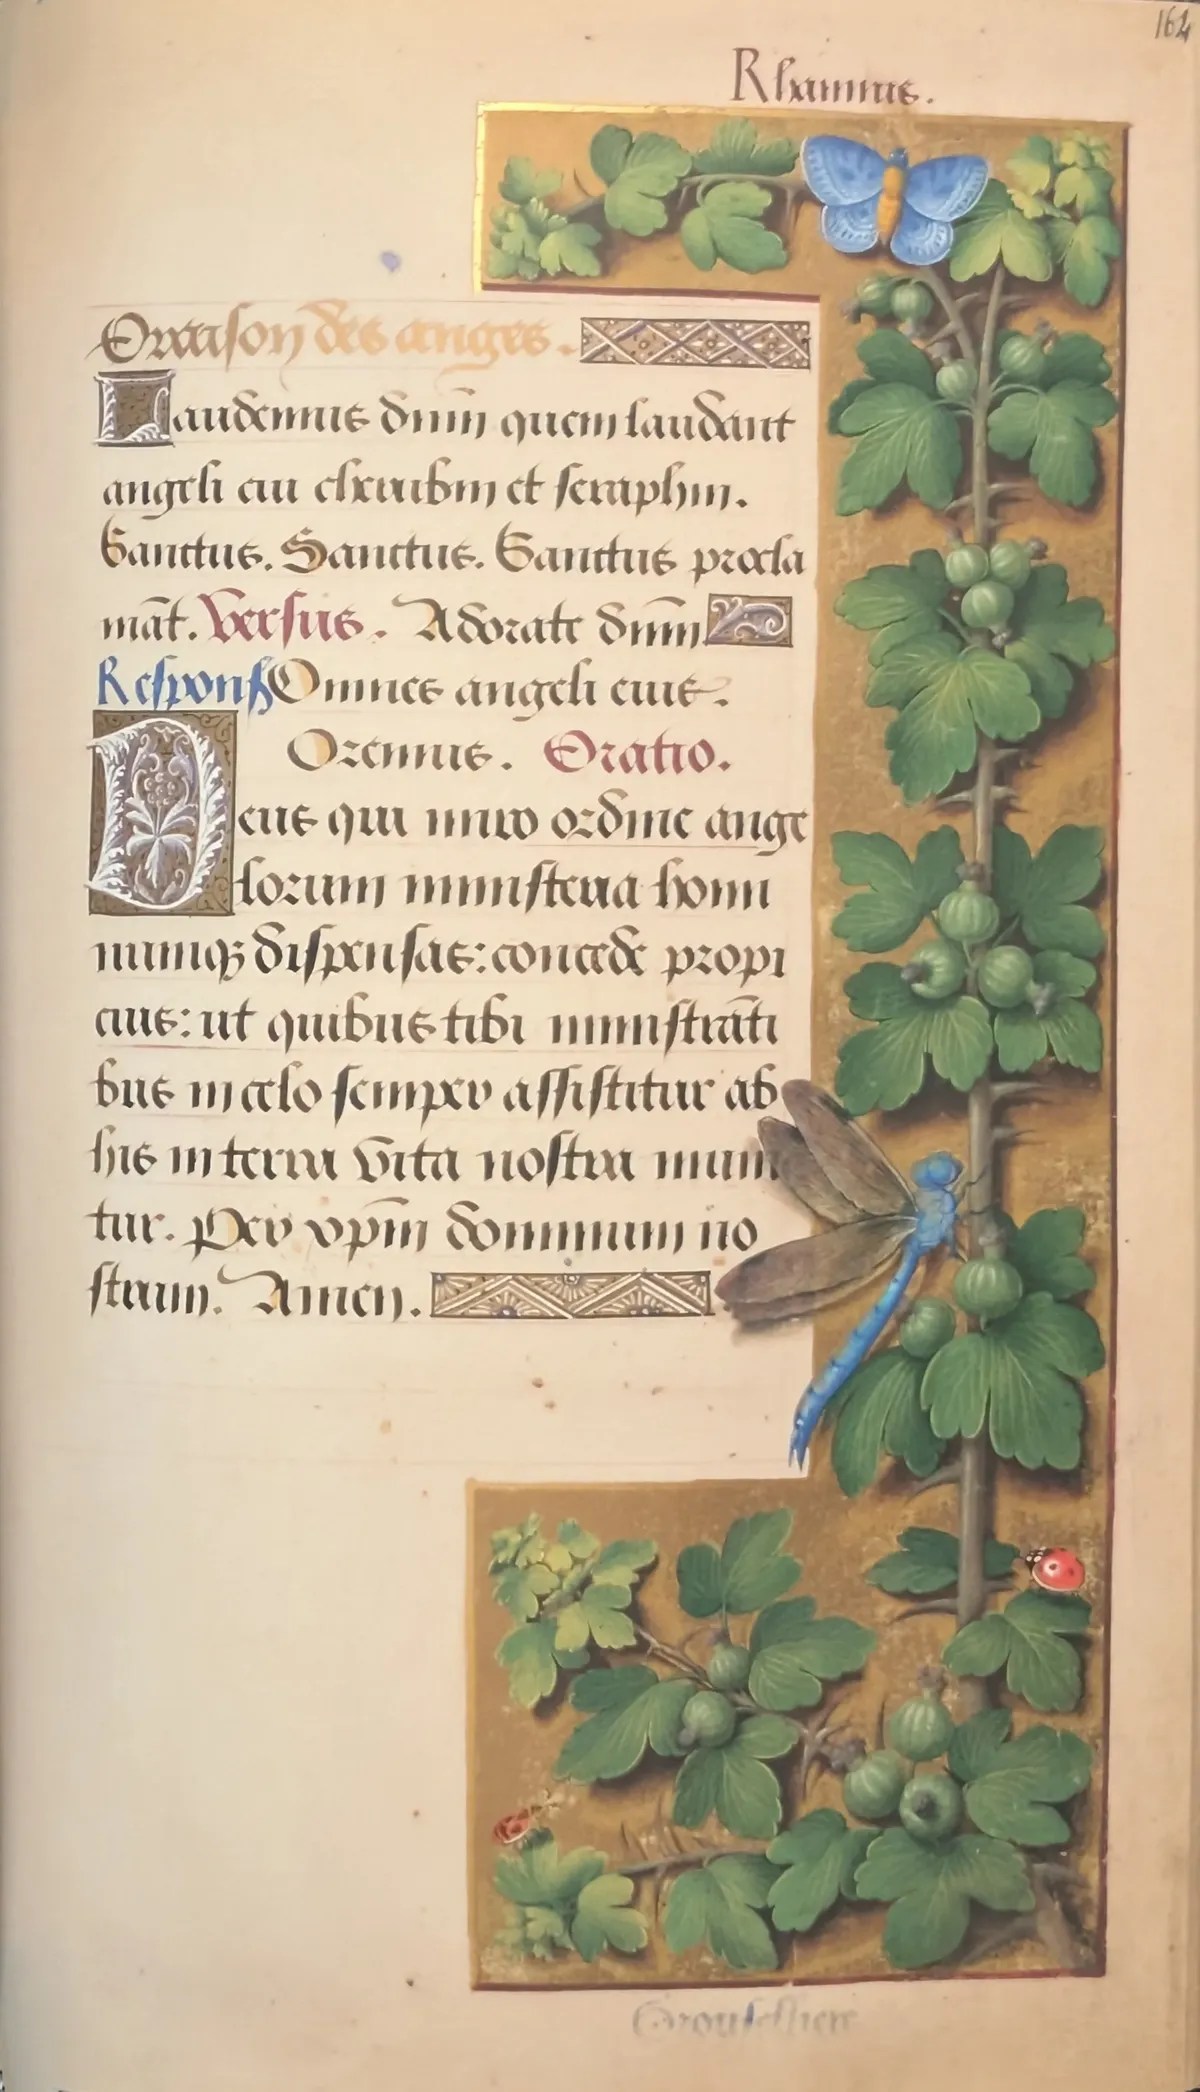 164
Rhamnus.
Oraison des anges.
Laudemus dnm̄ quem laudant
angeli cui cherubin et seraphin.
Sanctus. Sanctus. Sanctus procla
māt. Versus. Adorate dnm̄
Respons. Omnes angeli eius.
Oremus. Oratio.
Deus qui miro ordine ange
lorum ministeria homi
numq; dispensas: concede propi
cius: ut quibus tibi ministrāti
bus in celo semper assistitur ab
his in terra vita nostra muni
tur. Per xpm̄ dominum no
strum. Amen.
Grouselliere